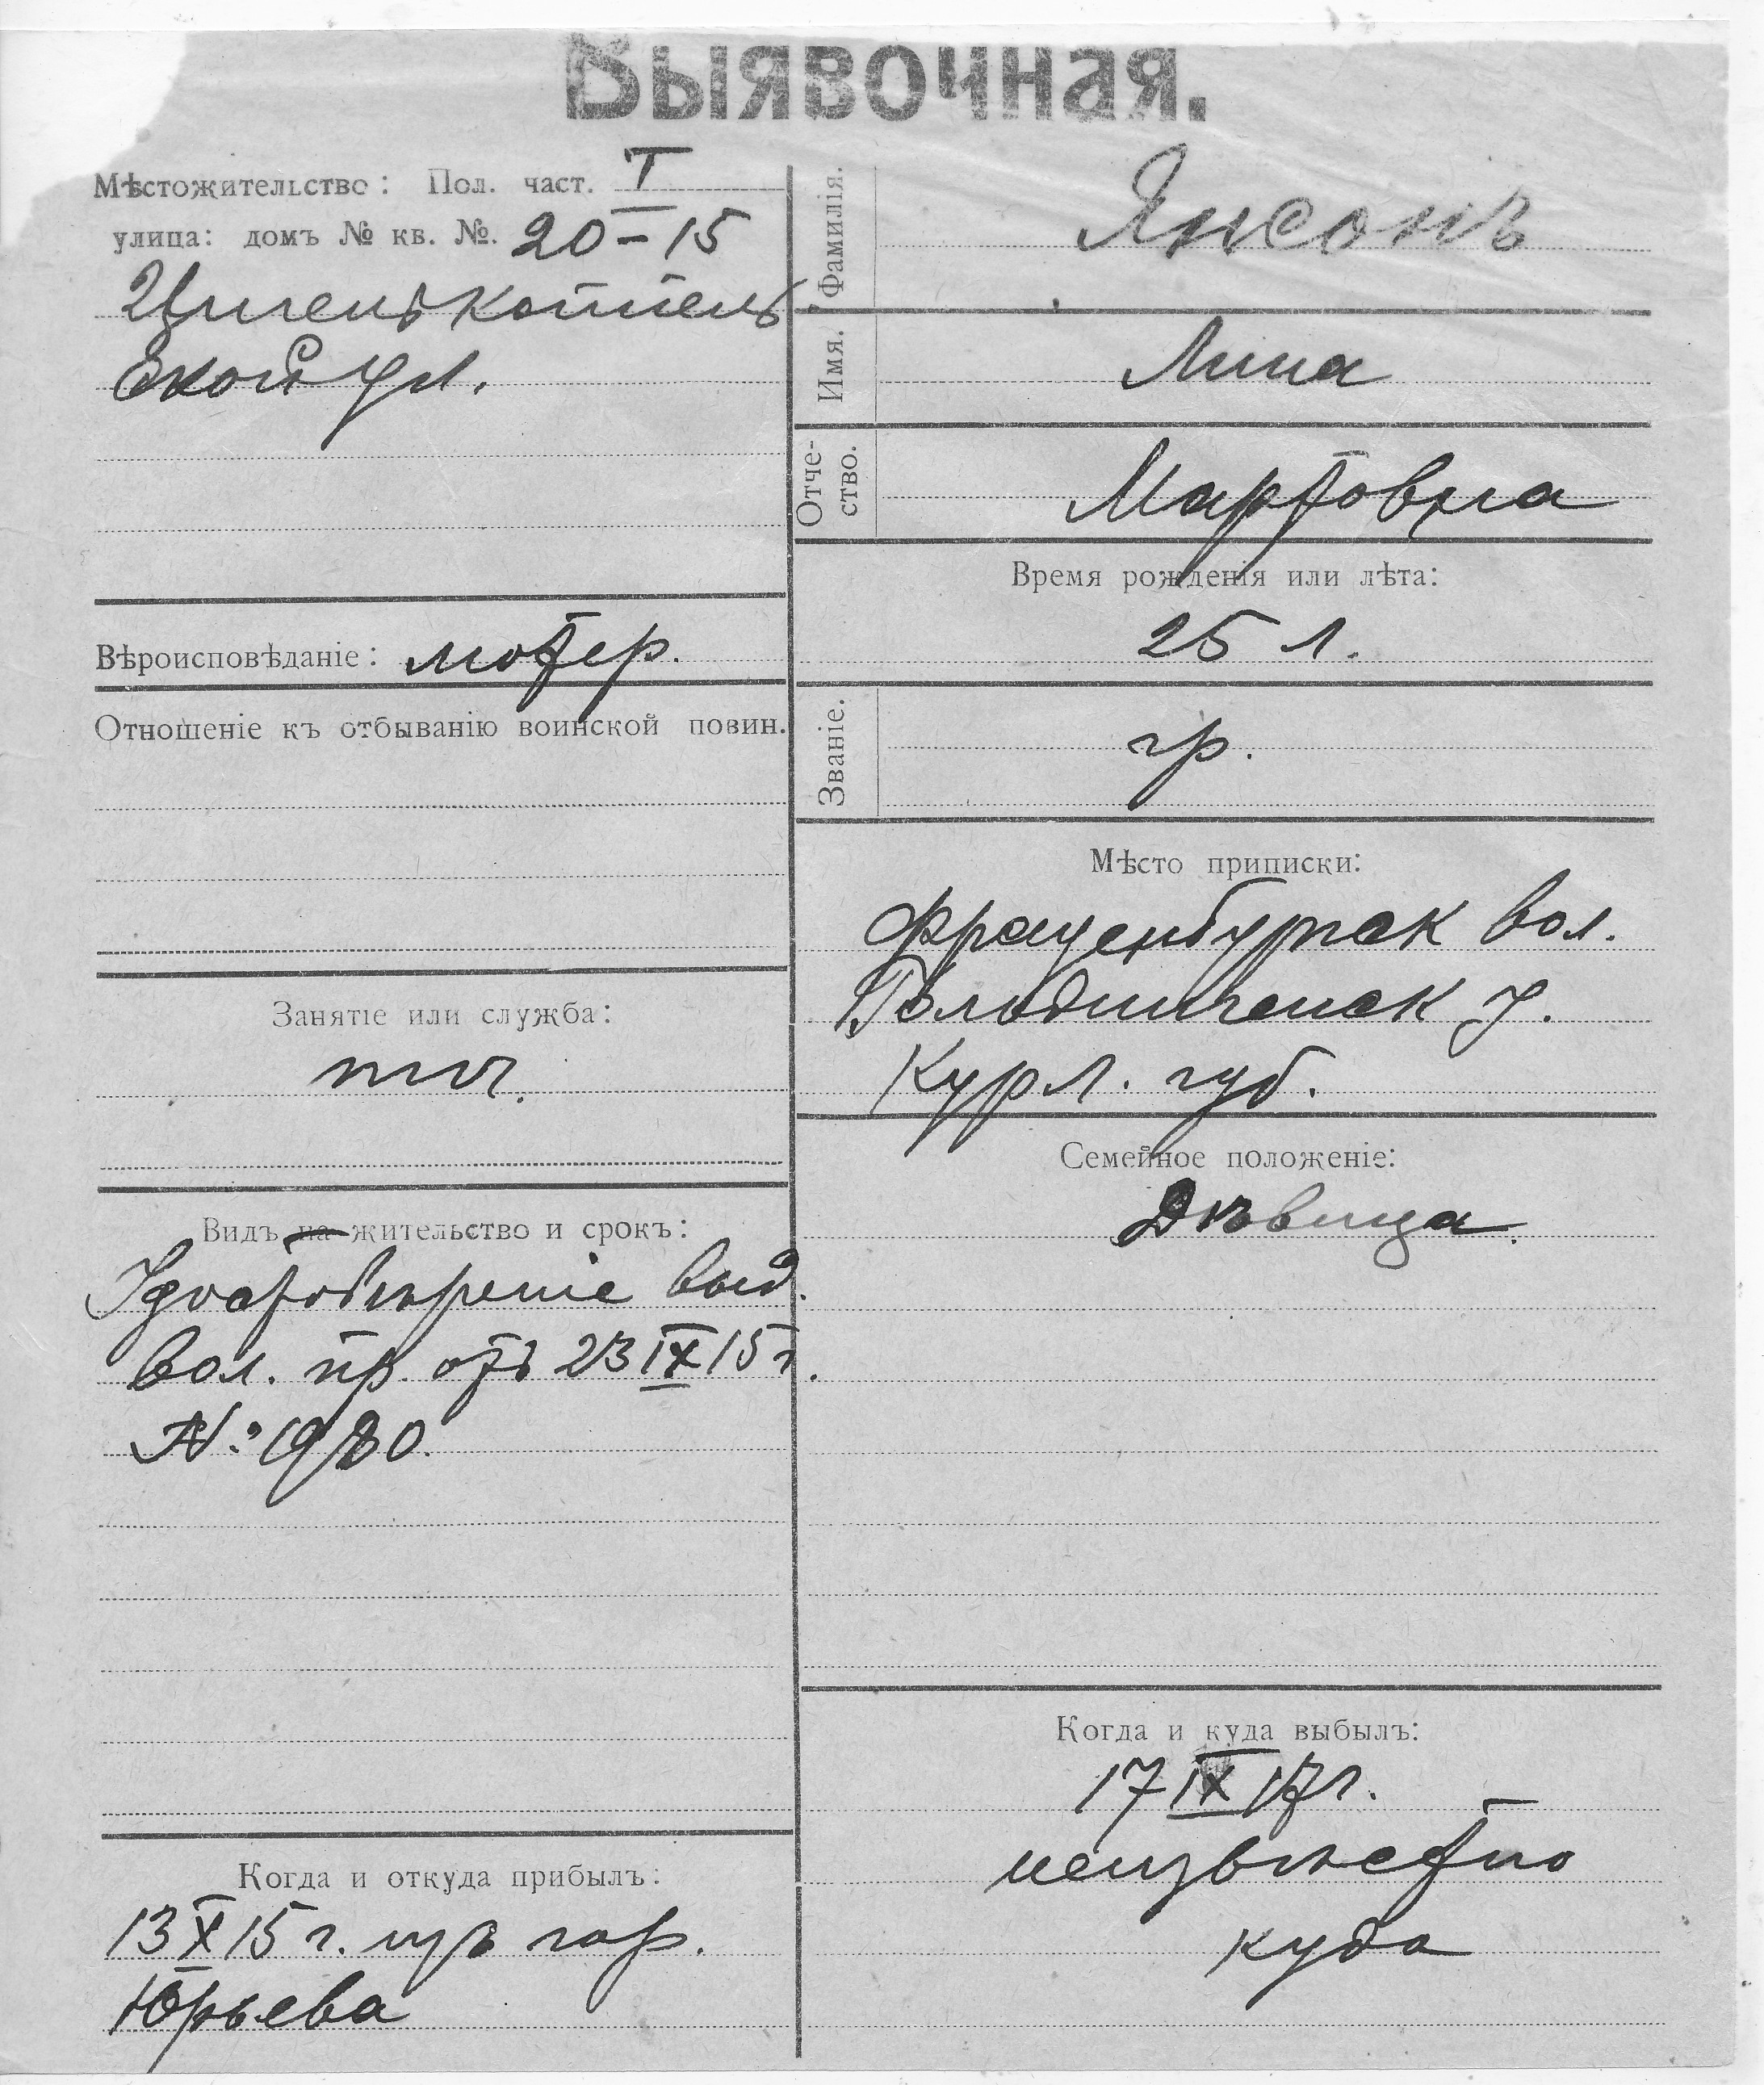 Выявочная.
Мѣстожительство: Пол. част. I
улица: домъ № кв. №. 20-15
Цигенькоппель
ской ул.
Вѣроисповѣданіе: лютер.
Отношеніе къ отбыванію воинской повин.
Занятіе или служба:
Видъ на жительство и срокъ:
Удостовѣреніе выд.
вол. пр. отъ 23 IX 15 г.
№ 1980.
Когда и откуда прибылъ:
13 X 15 г. изъ гор.
Юрьева
Фамилія.
Янсонъ
Имя.
Лина
Отче-
ство.
Мартовна
Время рожденія или лѣта:
25 л.
Званіе.
гр.
Мѣсто приписки:
Фрауенбургск вол.
Гольдингенск у.
Курл. губ.
Семейное положеніе:
Дѣвица.
Когда и куда выбылъ:
17 IX 17 г.
неизвѣстно
куда